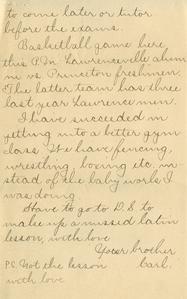 to come later or tutor
before the exams.
Basketball game here
this P.M. Lawrenceville alum
ni vs. Princeton freshmen
(The latter team has three
last year Lawrence men.
I have succeeded in
getting into a better gym
class We have fencing,
wrestling, boxing etc. in
stead of the baby work I
was doing
Have to go to D.S. to
make up a missed latin
lesson, with love
Your brother
P.S. Got the lesson Carl.
with love